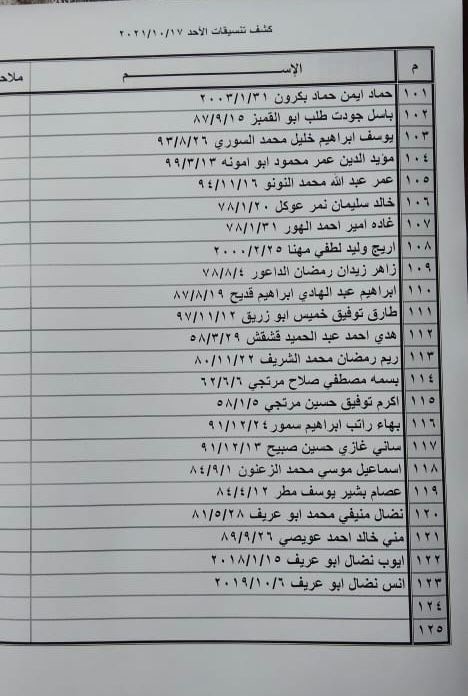 كشف تنسيقات الأحد ٢٠٢١/١٠/١٧
م الإســـــــــــــــــم ملاح
١٠١ حماد ايمن حماد بكرون ٢٠٠٣/١/٣١
١٠٢ باسل جودت طلب ابو القمبز ٨٧/٩/١٥
١٠٣ يوسف ابراهيم خليل محمد السوري ٩٣/٨/٢٦
١٠٤ مؤيد الدين عمر محمود ابو امونه ٩٩/٣/١٣
١٠٥ عمر عبد الله محمد النونو ٩٤/١١/١٦
١٠٦ خالد سليمان نمر عوكل ٧٨/١/٢٠
١٠٧ غاده امير احمد الهور ٧٨/١/٣١
١٠٨ اريج وليد لطفي مهنا ٢٠٠٠/٢/٢٥
١٠٩ زاهر زيدان رمضان الداعور ٧٨/٨/٤
١١٠ ابراهيم عبد الهادي ابراهيم قديح ٨٧/٨/١٩
١١١ طارق توفيق خميس ابو زريق ٩٧/١١/١٢
١١٢ هدي احمد عبد الحميد قشقش ٥٨/٣/٢٩
١١٣ ريم رمضان محمد الشريف ٨٠/١١/٢٢
١١٤ بسمه مصطفي صلاح مرتجي ٦٢/٦/٦
١١٥ اكرم توفيق حسين مرتجي ٥٨/١/٥
١١٦ بهاء راتب ابراهيم سمور ٩١/١٢/٢٤
١١٧ ساني غازي حسين صبيح ٩١/١٢/١٣
١١٨ اسماعيل موسي محمد الزعنون ٨٤/٩/١
١١٩ عصام بشير يوسف مطر ٨٤/٤/١٢
١٢٠ نضال منيفي محمد ابو عريف ٨١/٥/٢٨
١٢١ مني خالد احمد عويصي ٨٩/٩/٢٦
١٢٢ ايوب نضال ابو عريف ٢٠١٨/١/١٥
١٢٣ انس نضال ابو عريف ٢٠١٩/١٠/٦
١٢٤
١٢٥